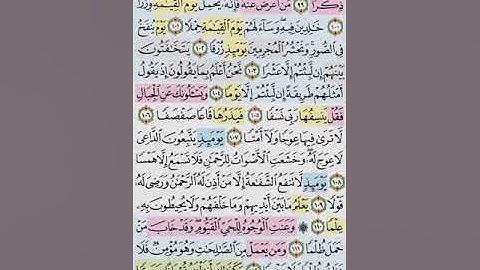 ذِكۡرٗا ٩٩ مَّنۡ أَعۡرَضَ عَنۡهُ فَإِنَّهُۥ يَحۡمِلُ يَوۡمَ ٱلۡقِيَٰمَةِ وِزۡرًا
١٠٠ خَٰلِدِينَ فِيهِۖ وَسَآءَ لَهُمۡ يَوۡمَ ٱلۡقِيَٰمَةِ حِمۡلٗا ١٠١ يَوۡمَ يُنفَخُ
فِي ٱلصُّورِۚ وَنَحۡشُرُ ٱلۡمُجۡرِمِينَ يَوۡمَئِذٖ زُرۡقٗا ١٠٢ يَتَخَٰفَتُونَ
بَيۡنَهُمۡ إِن لَّبِثۡتُمۡ إِلَّا عَشۡرٗا ١٠٣ نَّحۡنُ أَعۡلَمُ بِمَا يَقُولُونَ إِذۡ يَقُولُ
أَمۡثَلُهُمۡ طَرِيقَةً إِن لَّبِثۡتُمۡ إِلَّا يَوۡمٗا ١٠٤ وَيَسۡـَٔلُونَكَ عَنِ ٱلۡجِبَالِ
فَقُلۡ يَنسِفُهَا رَبِّي نَسۡفٗا ١٠٥ فَيَذَرُهَا قَاعٗا صَفۡصَفٗا ١٠٦
لَّا تَرَىٰ فِيهَا عِوَجٗا وَلَآ أَمۡتٗا ١٠٧ يَوۡمَئِذٖ يَتَّبِعُونَ ٱلدَّاعِيَ
لَا عِوَجَ لَهُۥۖ وَخَشَعَتِ ٱلۡأَصۡوَاتُ لِلرَّحۡمَٰنِ فَلَا تَسۡمَعُ إِلَّا هَمۡسٗا
١٠٨ يَوۡمَئِذٖ لَّا تَنفَعُ ٱلشَّفَٰعَةُ إِلَّا مَنۡ أَذِنَ لَهُ ٱلرَّحۡمَٰنُ وَرَضِيَ لَهُۥ
قَوۡلٗا ١٠٩ يَعۡلَمُ مَا بَيۡنَ أَيۡدِيهِمۡ وَمَا خَلۡفَهُمۡ وَلَا يُحِيطُونَ بِهِۦ
عِلۡمٗا ١١٠ ۞ وَعَنَتِ ٱلۡوُجُوهُ لِلۡحَيِّ ٱلۡقَيُّومِۖ وَقَدۡ خَابَ مَنۡ
حَمَلَ ظُلۡمٗا ١١١ وَمَن يَعۡمَلۡ مِنَ ٱلصَّٰلِحَٰتِ وَهُوَ مُؤۡمِنٞ فَلَا